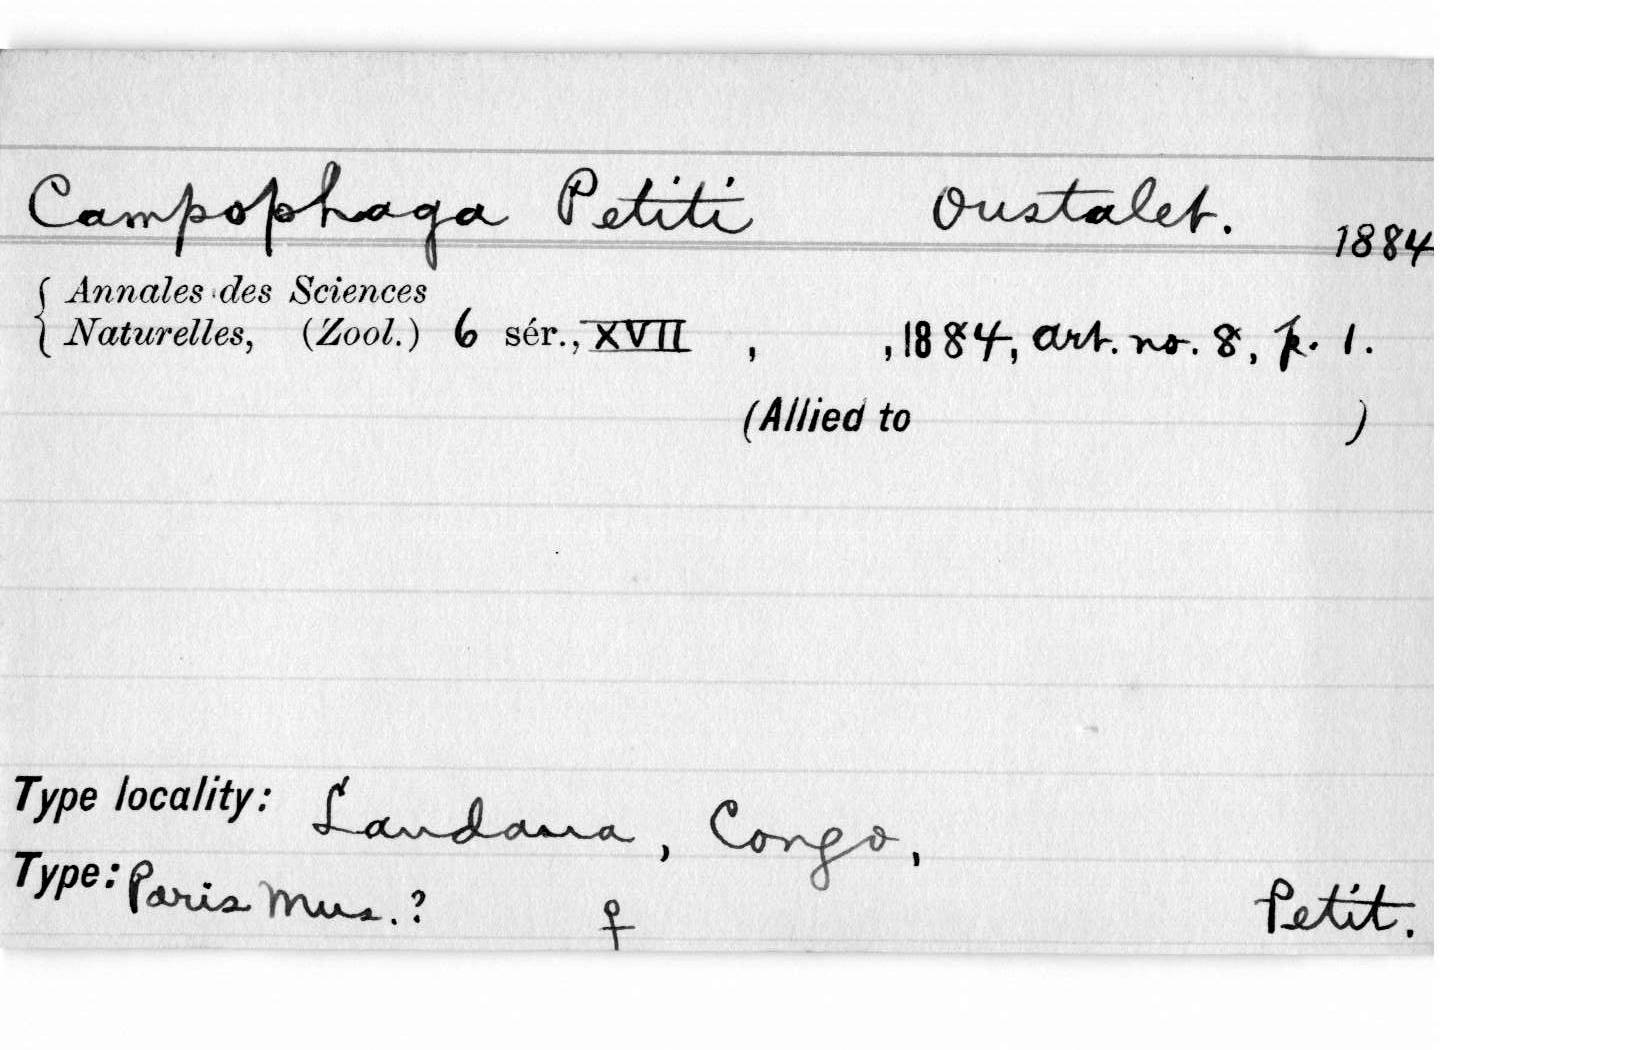 Campophaga Petiti Oustalet. 1884
Annales des Sciences
Naturelles, (Zool.) 6 sér., XVII , , 1884, art. no. 8, p. 1.
(Allied to )
Type locality: Landana, Congo,
Type: Paris Mus.? ♀ Petit.